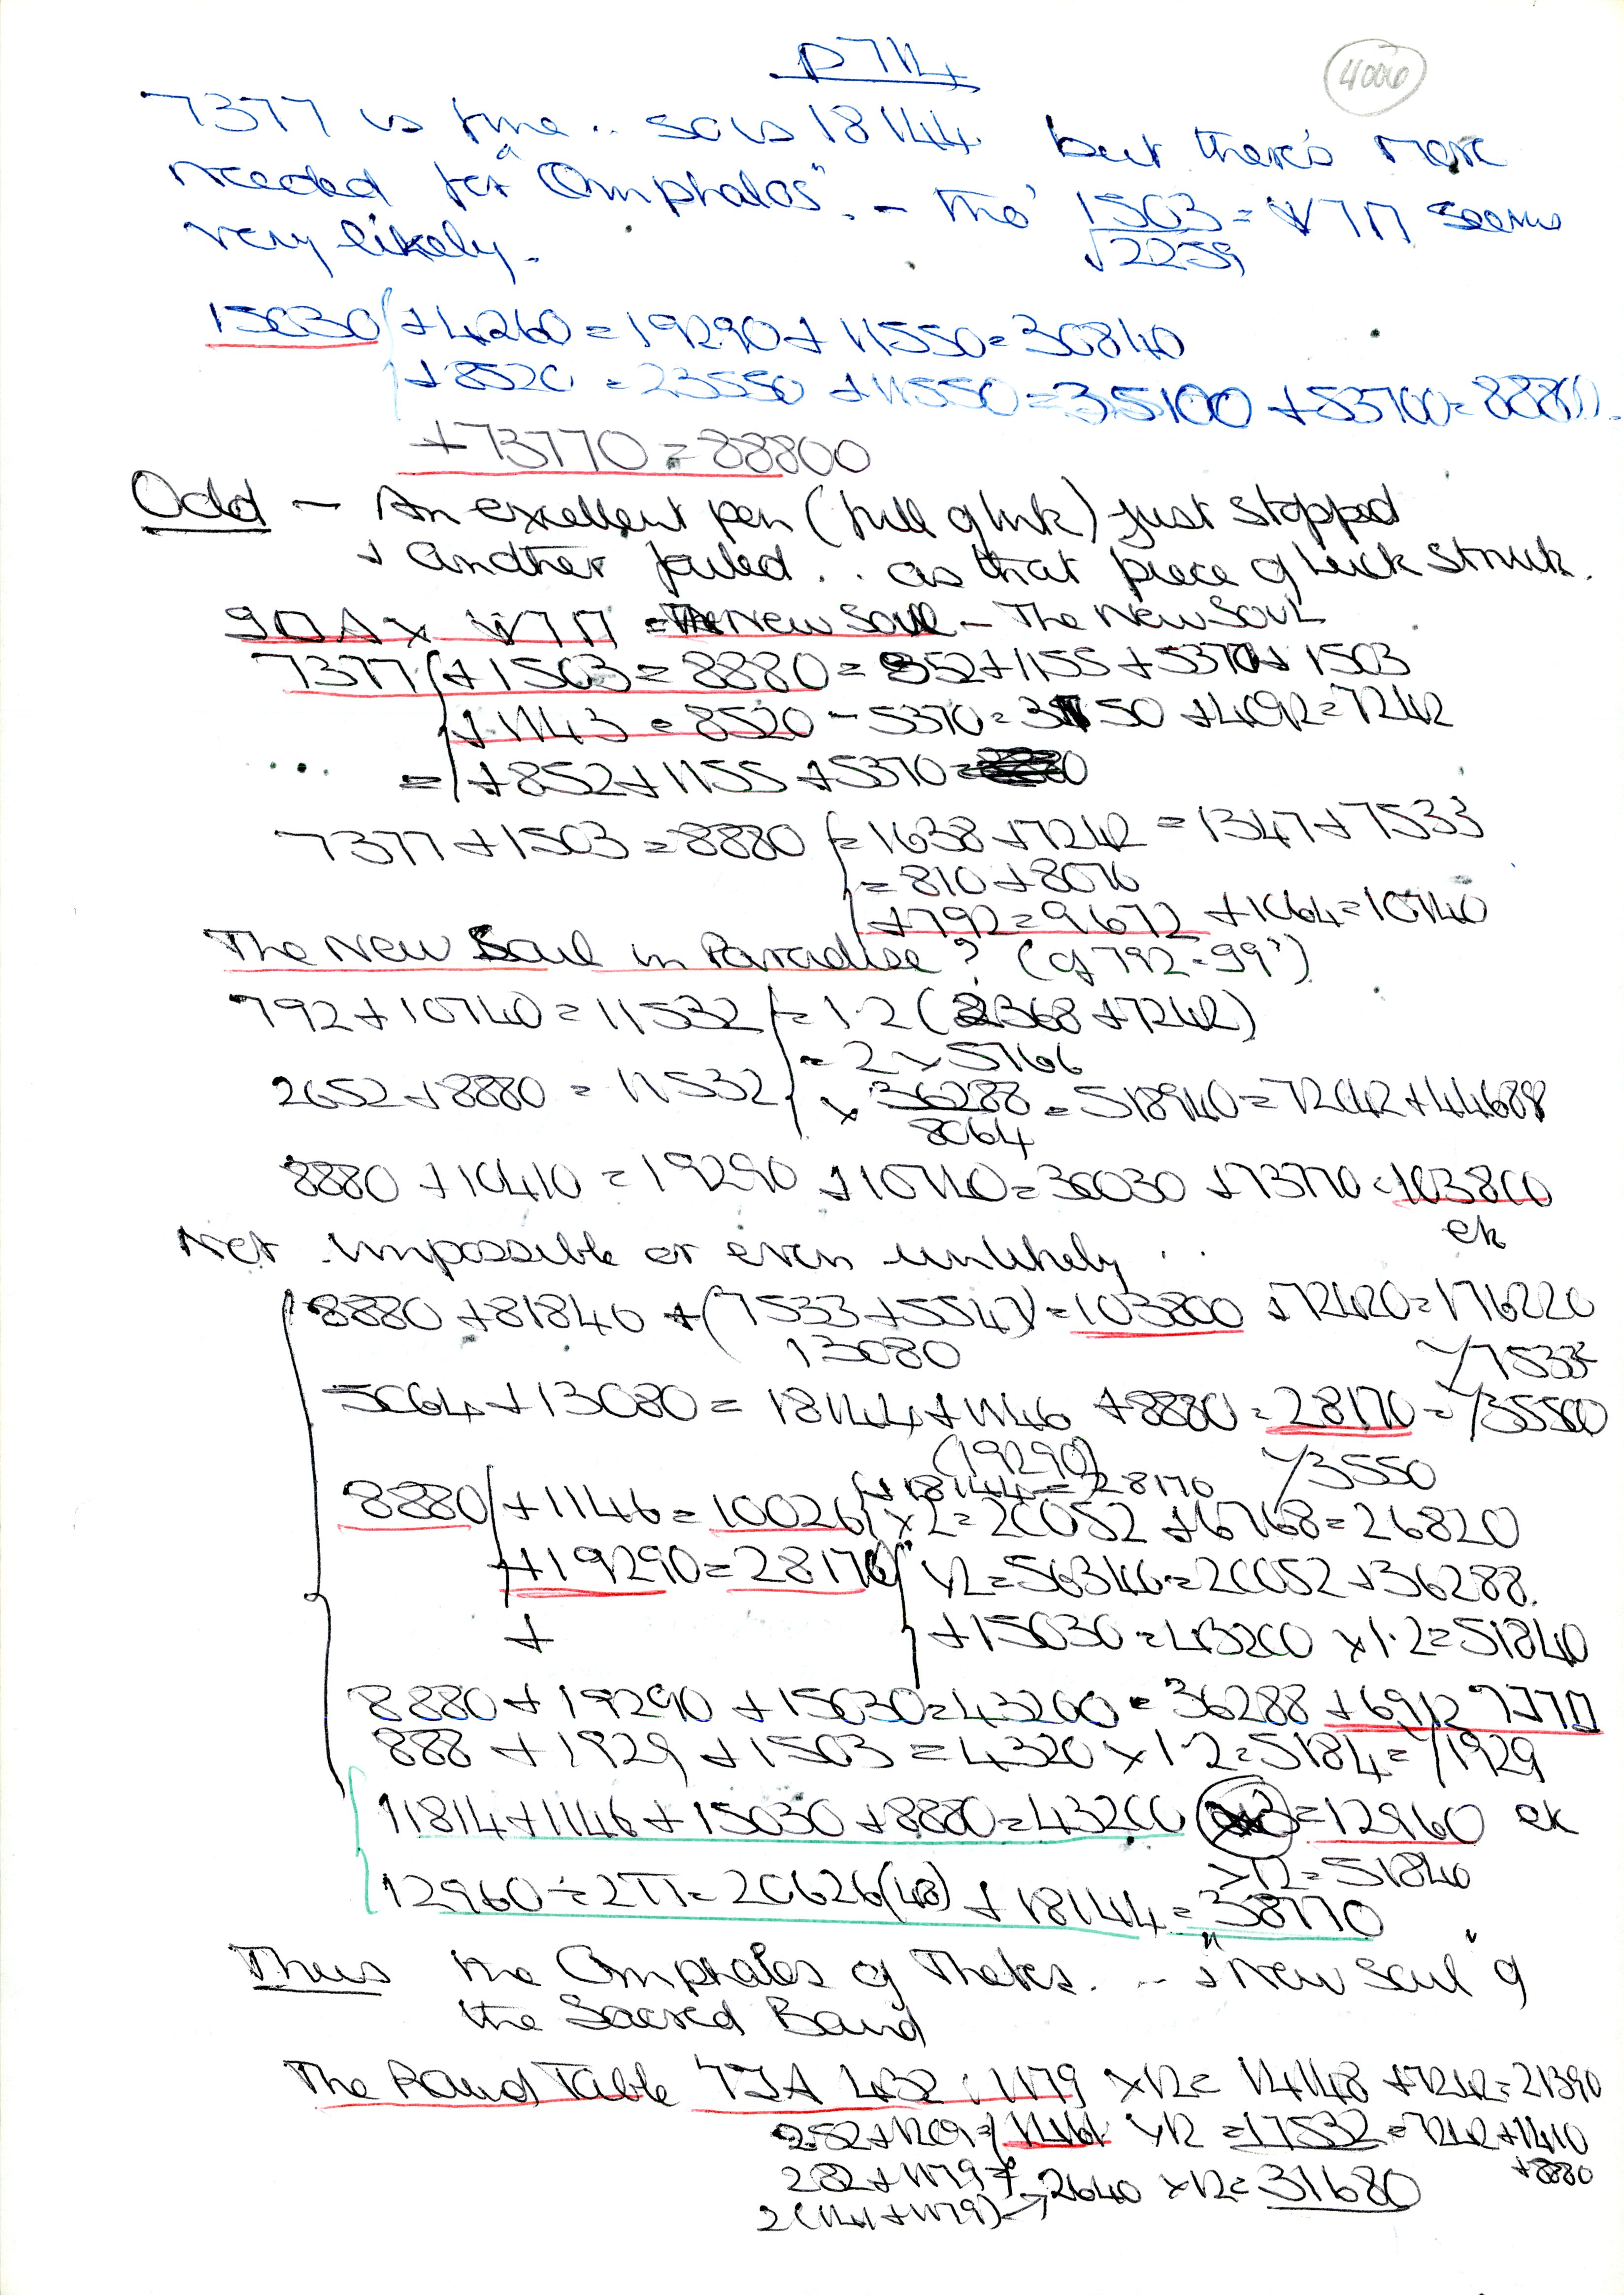 4006
7377 is fine .. so is 18144 but there's more
needed for "Omphalos". - tho' 1503 =
√2259
very likely.
15030 +4260 = 19290 + 11550 = 30840
+8520 = 23550 +11550 = 35100 +53700 = 88800
+73770 = 88800
Odd - An excellent pen (full of ink) just stopped
+ another failed .. as that piece of luck struck.
New Soul - The New Soul
7377 +1503 = 8880 = 852+1155+5370+1503
+1143 = 8520 - 5370 = 3150 +4092 = 7242
= +852+1155+5370
7377+1503 = 8880 = 1638+7242 = 1347+7533
= 810+8070
+792 = 9672 +1064 = 10740
The New Soul in Paradise? (of 792 = 99?)
792+10740 = 11532 = 1.2 (2368+7242)
= 2 x 5766
2652+8880 = 11532 x 36288 = 518940 = 7242+44688
8064
8880 +10410 = 19290 +10740 = 30030 +73770 = 103800
ek
Not impossible or even unlikely ..
8880 +81840 +(7533+5547) = 103800 +72420 = 176220
13080
5064+13080 = 18144+1146 +8880 = 28170 = √35500
(19290)
√3550
+18144 = 28170
8880 +1146 = 10026 x2 = 20052 +6768 = 26820
+19290 = 28170 x2 = 56340 = 20052+36288.
+
+15030 = 43200 x1.2 = 51840
8880+19290 +15030 = 43200 = 36288 +6912
888 + 1929 + 1503 = 4320 x1.2 = 5184 = √1929
11814+1146+15030+8880 = 43200 = 12960 ek
x12 = 51840
12960 ÷ 2π = 20626(48) + 18144 = 38770
Thus the Omphalos of Thebes. - + "New Soul" of
the Sacred Band
The Round Table 432 : 1179 x12 = 14148 +7242 = 21390
252+1209 = 1461 x12 = 17532 = 7242+1410
+8880
282+1179
2(141+1179) → 2640 x12 = 31680